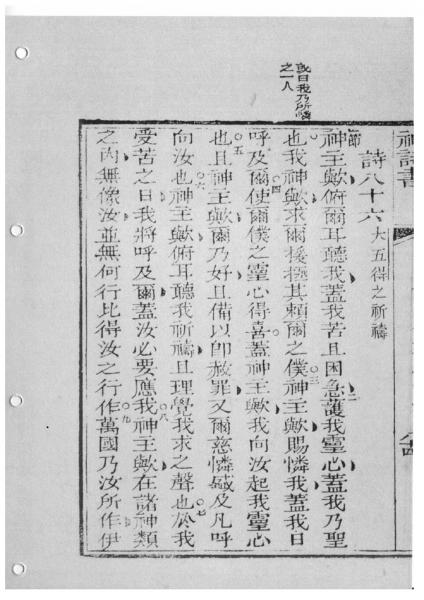 或曰我乃所憐
之一人
神詩書
詩八十六 大五得之祈禱
節神主歟俯爾耳聽我蓋我苦且困急二護我靈心蓋我乃聖
也我神歟求爾援拯其賴爾之僕三神主歟賜憐我蓋我日
呼及爾四使爾僕之靈心得喜蓋神主歟我向汝起我靈心
也五且神主歟爾乃好且備以卽赦罪又爾慈憐盛及凡呼
向汝也六神主歟俯耳聽我祈禱且理覺我求之聲也七於我
受苦之日我將呼及爾蓋汝必要應我八神主歟在諸神類
之內無像汝並無何行比得汝之行作九萬國乃汝所作伊